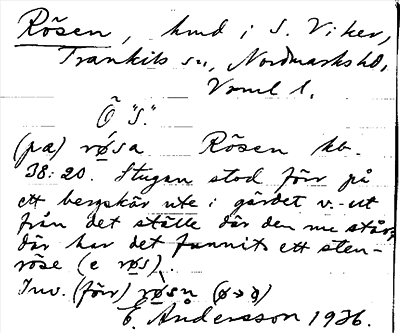 Rösen, hmd i S. Viker,
Trankils sn, Nordmarks hd,
Vrml l.
Õ "S."
(pæ) røsa Rösen kb.
38:20. Stugan stod förr på
ett bergskär ute i gärdet v. ut
från det ställe där den nu står,
där har det funnits ett sten-
röse (e røs).
Inv. (förr) røsn (ø→ö)
E. Andersson 1936.